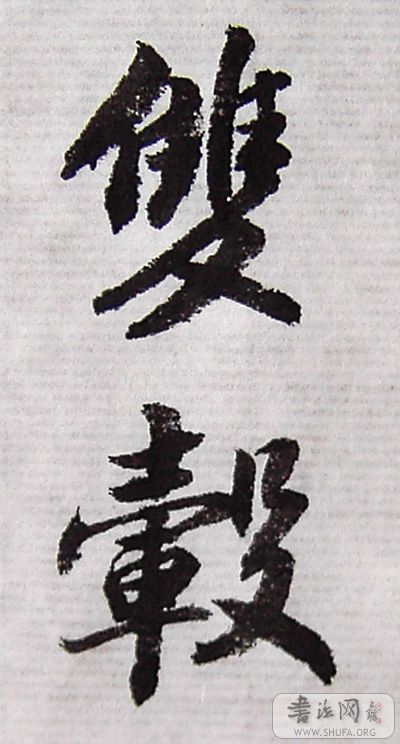 雙轂
书法网
WWW.SHUFA.ORG